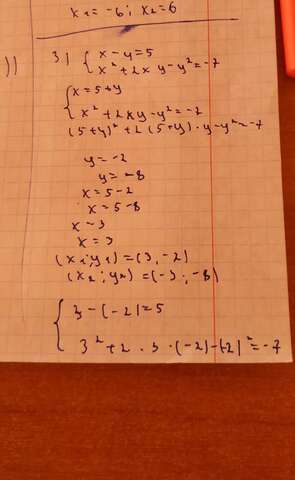 x₁=-6; x₂=6
)) 3) { x-y=5
x²+2xy-y²=-7
{ x=5+y
x²+2xy-y²=-7
(5+y)²+2(5+y)·y-y²=-7
y=-2
y=-8
x=5-2
x=5-8
x=3
x=3
(x₁;y₁)=(3,-2)
(x₂;y₂)=(-3;-8)
{ 3-(-2)=5
3²+2·3·(-2)-(-2)²=-7